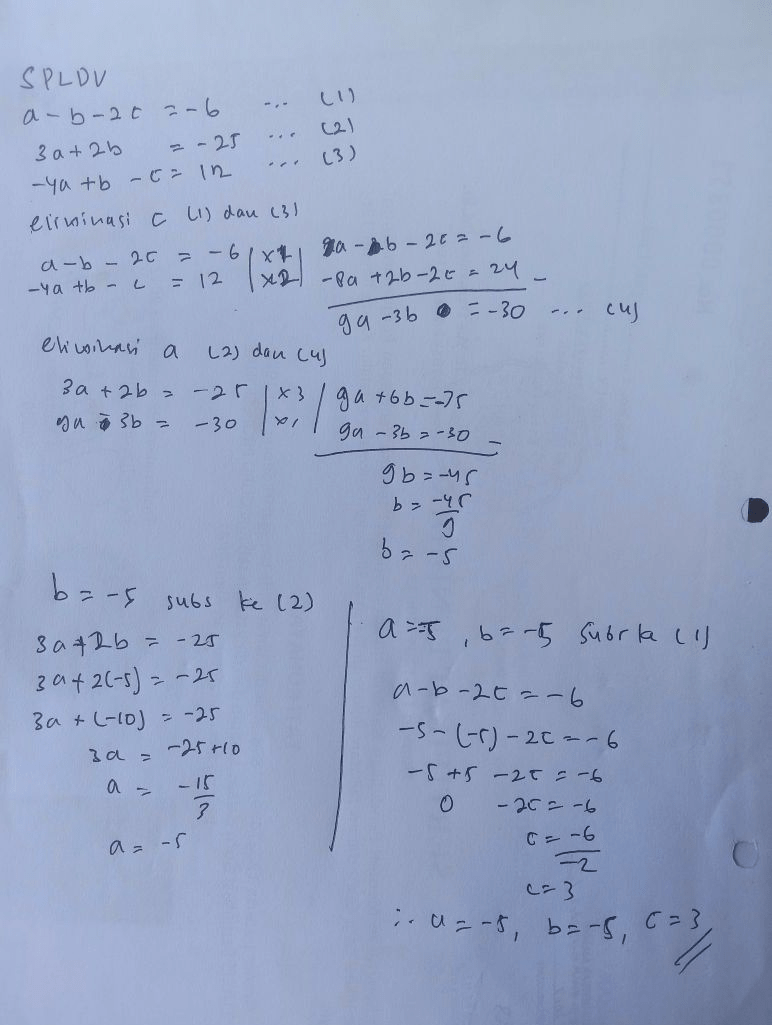 SPLDV
a - b - 2c = -6 ... (1)
3a + 2b = -25 ... (2)
-4a + b - c = 12 ... (3)
eliminasi c (1) dan (3)
a - b - 2c = -6 | x1 | a - b - 2c = -6
-4a + b - c = 12 | x2 | -8a + 2b - 2c = 24 -
9a - 3b = -30 ... (4)
eliminasi a (2) dan (4)
3a + 2b = -25 | x3 | 9a + 6b = -75
9a - 3b = -30 | x1 | 9a - 3b = -30 -
9b = -45
b = -45
9
b = -5
b = -5 subs ke (2)
3a + 2b = -25
3a + 2(-5) = -25
3a + (-10) = -25
3a = -25 + 10
a = -15
3
a = -5
a = -5, b = -5 subs ke (1)
a - b - 2c = -6
-5 - (-5) - 2c = -6
-5 + 5 - 2c = -6
0 - 2c = -6
c = -6
-2
c = 3
∴ a = -5, b = -5, c = 3 //